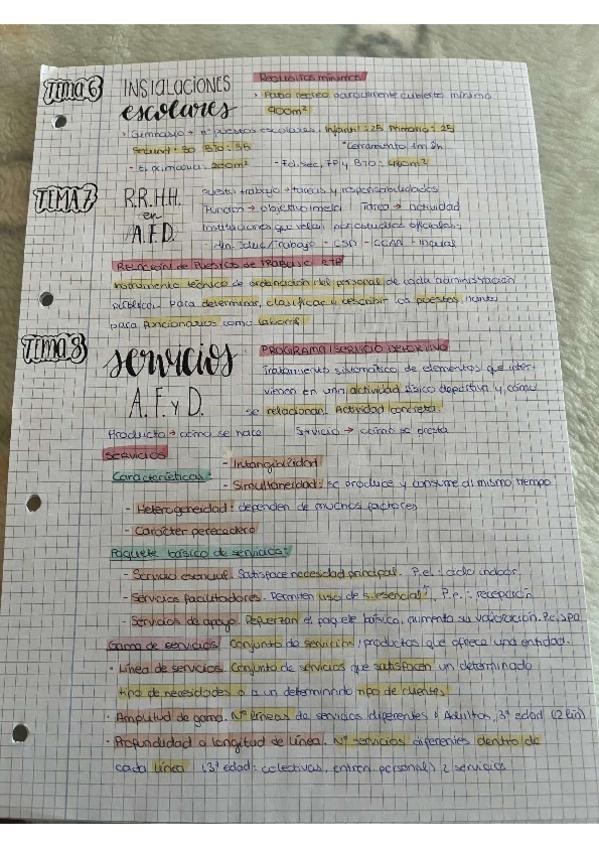 Tema 6
INSTALACIONES
escolares
Requisitos mínimos
> Patio recreo parcialmente cubierto mínimo
900m²
> Gimnasio + nº puestos escolares. Infantil: 25 Primaria: 25
Secund: 30 Bto: 35 *Cerramiento 1m
- Ed. primaria: 200m² - Ed. sec, FP y Bto: 480m²
TEMA 7
R.R.H.H.
en
A.F.D.
Puesto trabajo → tareas y responsabilidades
Función → objetivo/meta Tarea → actividad
Instituciones que velan por estudios oficiales:
- CSD - CCAA -
Relación de Puestos de Trabajo: RTP
Instrumento técnico de ordenación del personal de cada administración
pública. Para determinar, clasificar y describir los puestos, tanto
para funcionarios como laboral
Tema 8
servicios
A.F. y D.
PROGRAMA/SERVICIO DEPORTIVO
Tratamiento sistemático de elementos que inter-
vienen en una actividad físico deportiva y cómo
se relacionan. Actividad concreta.
Producto → cómo se hace Servicio → cómo se presta
SERVICIOS
Características:
- Intangibilidad
- Simultaneidad: se produce y consume al mismo tiempo
- Heterogeneidad: dependen de muchos factores
- Carácter perecedero
Paquete básico de servicios:
- Servicio esencial. Satisface necesidad principal. P.ej.: ciclo indoor
- Servicios facilitadores. Permiten uso de s.esencial. P.e.: recepción
- Servicios de apoyo. Refuerzan el paquete básico, aumenta su valoración. P.e; spa
Gama de servicios. Conjunto de servicios/productos que ofrece una entidad.
· Línea de servicios. Conjunto de servicios que satisfacen un determinado
tipo de necesidades o a un determinado tipo de clientes
· Amplitud de gama. Nº líneas de servicios diferentes: Adultos, 3ª edad (2 lin)
· Profundidad o longitud de línea. Nº servicios diferentes dentro de
cada línea (3ª edad: colectivas, entren. personal) 2 servicios